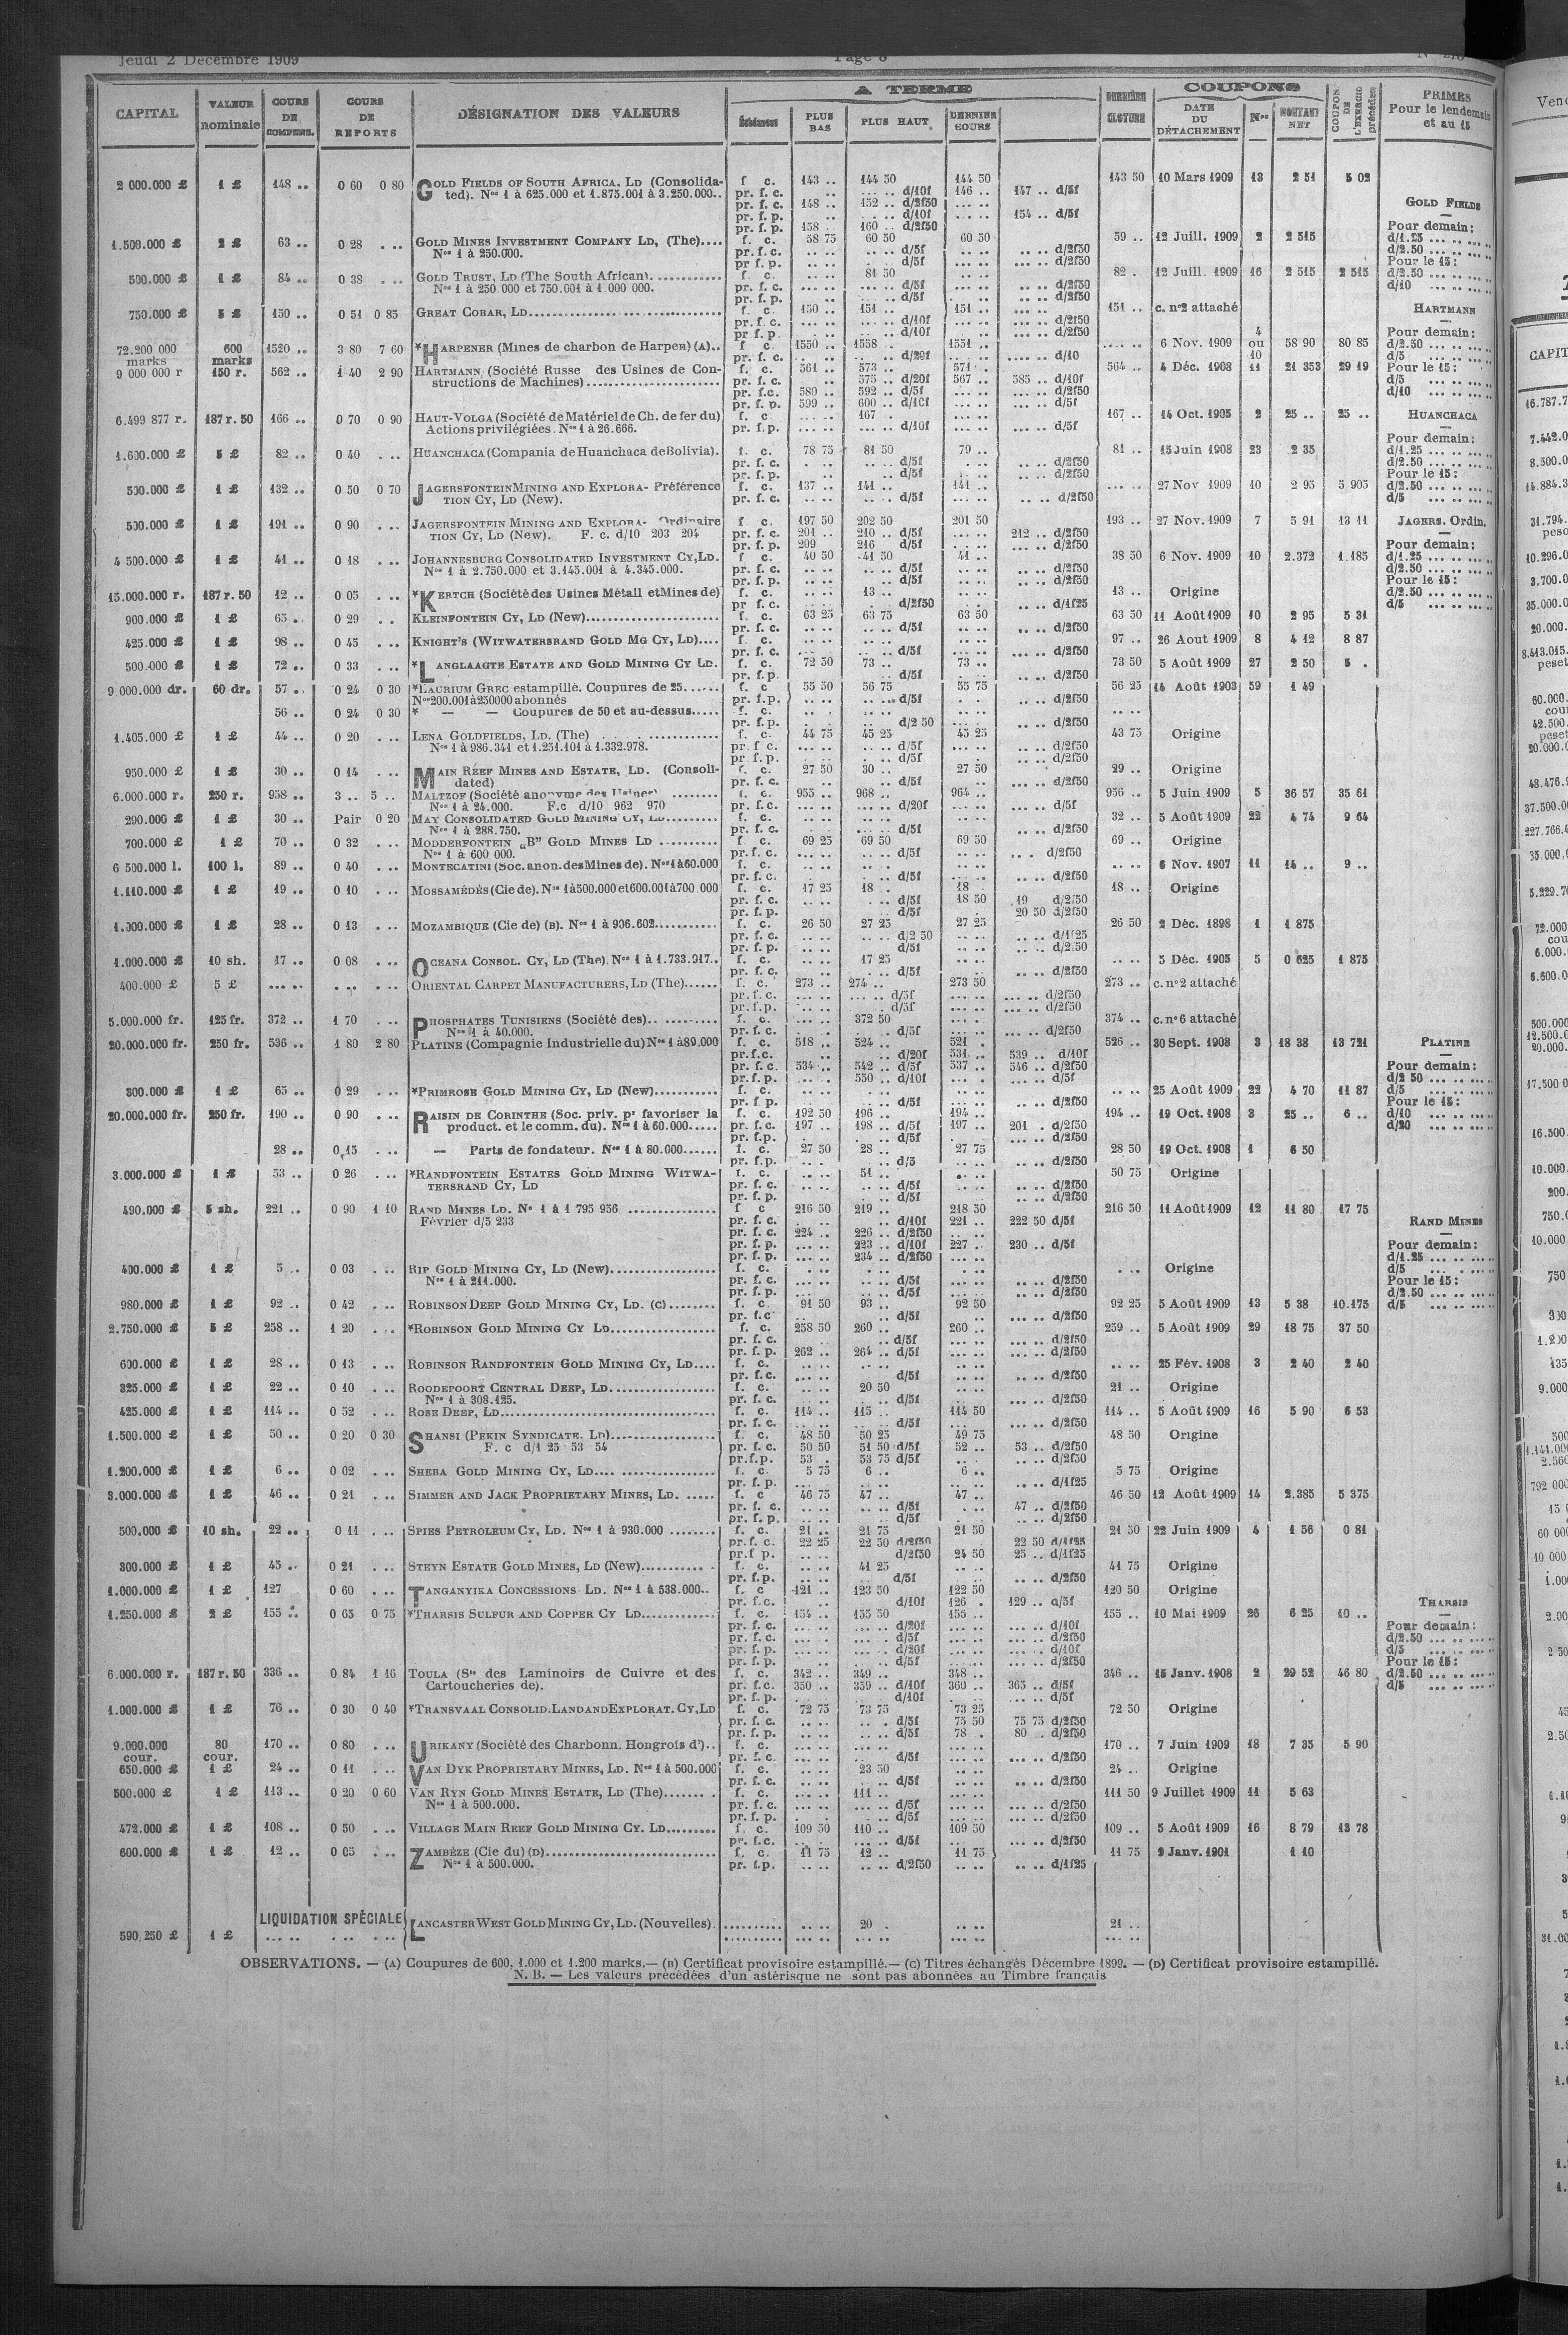 Jeudi 2 Décembre 1909
CAPITAL VALEUR nominale COURS DE COMPENS. COURS DE REPORTS DÉSIGNATION DES VALEURS A TERME PLUS BAS PLUS HAUT DERNIER COURS DERNIÈRE CLOTURE COUPONS DATE DU DÉTACHEMENT Nos MONTANT NET COUPON DE L'EXERCICE précédent PRIMES Pour le lendemain et au 15
2 000.000 £ 1 £ 148 .. 0 60 0 80 GOLD FIELDS OF SOUTH AFRICA, LD (Consolida- f c. 143 .. 144 50 144 50 143 50 10 Mars 1909 13 2 51 5 02
ted). Nos 1 à 625.000 et 1.875.001 à 3.250.000.. pr. f. c. .. .... .. d/10f 146 .. 147 .. d/5f
pr. f. c. 148 .. 152 .. d/2f50
pr. f. p. .. d/10f .... 154 .. d/5f
pr. f. p. 158 .. 160 .. d/2f50
GOLD FIELDS
Pour demain:
d/1.25
d/2.50
Pour le 15:
d/2.50
d/10
1.500.000 £ 2 £ 63 .. 0 28 ... GOLD MINES INVESTMENT COMPANY LD, (The).... f. c. 58 75 60 50 60 50 59 .. 12 Juill. 1909 2 2 515
Nos 1 à 250.000. pr. f. c. d/5f d/2f50
pr f. p. d/5f d/2f50
500.000 £ 1 £ 84 .. 0 38 ... GOLD TRUST, LD (The South African). f. c. 81 50 82 . 12 Juill. 1909 16 2 515 2 515
Nos 1 à 250 000 et 750.001 à 1 000 000. pr. f. c. d/5f d/2f50
pr. f. p. d/5f d/2f50
750.000 £ 5 £ 150 .. 0 51 0 85 GREAT COBAR, LD f. c. 150 .. 151 .. 151 .. 151 .. c. n°2 attaché
pr. f. c. d/10f d/2f50
pr f. p. d/10f d/2f50
HARTMANN
Pour demain:
d/2.50
d/5
Pour le 15:
d/5
d/10
72.200 000 marks 600 marks 1520 .. 3 80 7 60 *HARPENER (Mines de charbon de Harpen) (A).. f c. 1550 .. 1558 .. 1551 .. 6 Nov. 1909 4 ou 10 58 90 80 85
pr. f. c. d/20f d/10
9 000 000 r 150 r. 562 .. 1 40 2 90 HARTMANN (Société Russe des Usines de Con- f. c. 561 .. 573 .. 571 . 564 .. 4 Déc. 1908 11 21 353 29 19
structions de Machines) pr. f. c. 575 .. d/20f 567 .. 585 .. d/10f
pr. f.c. 580 .. 592 .. d/5f d/2f50
pr. f. p. 599 .. 600 .. d/10f d/5f
6.499 877 r. 187 r. 50 166 .. 0 70 0 90 HAUT-VOLGA (Société de Matériel de Ch. de fer du) f. c 167 . 167 .. 14 Oct. 1905 2 25 .. 25 ..
Actions privilégiées. Nos 1 à 26.666. pr. f.p. d/10f d/5f
HUANCHACA
Pour demain:
d/1.25
d/2.50
Pour le 15:
d/2.50
d/5
1.600.000 £ 5 £ 82 .. 0 40 ... HUANCHACA (Compania de Huanchaca de Bolivia). f. c. 78 75 81 50 79 .. 81 .. 15 Juin 1908 23 2 35
pr. f. c. d/5f d/2f50
pr. f. p. d/5f d/2f50
500.000 £ 1 £ 132 .. 0 50 0 70 JAGERSFONTEIN MINING AND EXPLORA- Préférence f. c. 137 .. 141 .. 141 .. 27 Nov 1909 10 2 95 5 905
TION CY, LD (New). pr. f. c. d/5f d/2f50
500.000 £ 1 £ 191 .. 0 90 ... JAGERSFONTEIN MINING AND EXPLORA- Ordinaire f c. 197 50 202 50 201 50 193 .. 27 Nov. 1909 7 5 91 13 11
TION CY, LD (New). F. c. d/10 203 204 pr. f. c. 201 . 210 .. d/5f 212 .. d/2f50
pr. f. p. 209 216 d/5f d/2f50
JAGERS. Ordin.
Pour demain:
d/1.25
d/2.50
Pour le 15:
d/2.50
d/5
4 500.000 £ 1 £ 41 .. 0 18 ... JOHANNESBURG CONSOLIDATED INVESTMENT CY, LD. f c. 40 50 41 50 41 .. 38 50 6 Nov. 1909 10 2.372 1.185
Nos 1 à 2.750.000 et 3.145.001 à 4.345.000. pr. f. c. d/5f d/2f50
pr. f. p. d/5f d/2f50
15.000.000 r. 187 r. 50 12 .. 0 05 ... *KERTCH (Société des Usines Métall et Mines de) f. c. 13 .. 13 .. Origine
pr f. c. d/2f50 d/1f25
900.000 £ 1 £ 65 . 0 29 .. KLEINFONTEIN CY, LD (New) f. c. 63 25 63 75 63 50 63 50 11 Août 1909 10 2 95 5 31
pr. f. c. d/5f d/2f50
425.000 £ 1 £ 98 .. 0 45 ... KNIGHT'S (WITWATERSRAND GOLD MG CY, LD).... f. c. 97 .. 26 Aout 1909 8 4 12 8 87
pr. f. c. d/5f d/2f50
500.000 £ 1 £ 72 .. 0 33 ... *LANGLAAGTE ESTATE AND GOLD MINING CY LD. f. c. 72 50 73 .. 73 .. 73 50 5 Août 1909 27 2 50 5 .
pr. f.p. d/5f d/2f50
9 000.000 dr. 60 dr. 57 .. 0 24 0 30 *LAURIUM GREC estampillé. Coupures de 25...... f. c 55 50 56 75 55 75 56 25 14 Août 1903 59 1 49
Nos 200.001 à 250000 abonnés pr. f.p. d/5f d/2f50
56 .. 0 24 0 30 * — — Coupures de 50 et au-dessus..... f. c.
pr. f.p. d/2 50 d/2f50
1.405.000 £ 1 £ 44 .. 0 20 ... LENA GOLDFIELDS, LD. (The) f. c. 44 75 45 25 45 25 43 75 Origine
Nos 1 à 986.341 et 1.251.101 à 1.332.978. pr. f c. d/5f d/2f50
pr f. p. d/5f d/2f50
950.000 £ 1 £ 30 .. 0 14 ... MAIN REEF MINES AND ESTATE, LD. (Consoli- f. c. 27 50 30 .. 27 50 29 .. Origine
dated) pr. f. c. d/5f d/2f50
6.000.000 r. 250 r. 958 .. 3 .. 5 .. MALTZOF (Société anonyme des Usines) f. c. 955 .. 968 .. 964 .. 956 .. 5 Juin 1909 5 36 57 35 61
Nos 1 à 24.000. F.c d/10 962 970 pr. f. c. d/20f d/5f
290.000 £ 1 £ 30 .. Pair 0 20 MAY CONSOLIDATED GOLD MINING CY, LD f. c. 32 .. 5 Août 1909 22 4 74 9 64
Nos 1 à 288.750. pr. f. c. d/5f d/2f50
700.000 £ 1 £ 70 .. 0 32 ... MODDERFONTEIN „B" GOLD MINES LD f. c. 69 25 69 50 69 50 69 .. Origine
Nos 1 à 600 000. pr. f. c. d/5f d/2f50
6 500.000 l. 100 l. 89 .. 0 40 ... MONTECATINI (Soc. anon. des Mines de). Nos 1 à 60.000 f. c. 6 Nov. 1907 11 14 .. 9 ..
pr. f. c. d/5f d/2f50
1.110.000 £ 1 £ 19 .. 0 10 ... MOSSAMÉDÈS (Cie de). Nos 1 à 500.000 et 600.001 à 700 000 f. c. 17 25 18 .. 18 . 18 .. Origine
pr. f. c. d/5f 18 50 19 d/2f50
pr. f. p. d/5f 20 50 d/2f50
1.000.000 £ 1 £ 28 .. 0 13 ... MOZAMBIQUE (Cie de) (B). Nos 1 à 936.602 f. c. 26 50 27 25 27 25 26 50 2 Déc. 1898 1 1 875
pr. f. c. d/2 50 d/1f25
pr. f. p. d/5f d/2f50
1.000.000 £ 10 sh. 17 .. 0 08 ... OCEANA CONSOL. CY, LD (The). Nos 1 à 1.733.917.. f. c. 17 25 5 Déc. 1905 5 0 625 1 875
pr. f. c. d/5f d/2f50
400.000 £ 5 £ ORIENTAL CARPET MANUFACTURERS, LD (The)...... f. c. 273 .. 274 .. 273 50 273 .. c. n°2 attaché
pr. f. c. d/5f d/2f50
pr. f.p. d/5f d/2f50
5.000.000 fr. 125 fr. 372 .. 1 70 ... PHOSPHATES TUNISIENS (Société des) f. c. 372 50 374 .. c. n°6 attaché
Nos 1 à 40.000. pr. f. c. d/5f d/2f50
20.000.000 fr. 250 fr. 536 .. 1 80 2 80 PLATINE (Compagnie Industrielle du) Nos 1 à 89.000 f. c. 518 .. 524 .. 521 . 526 .. 30 Sept. 1908 3 18 38 13 721
pr. f.c. d/20f 531 .. 539 .. d/10f
pr. f. c. 534 .. 542 .. d/5f 537 .. 546 .. d/2f50
pr. f. p. 550 .. d/10f d/5f
PLATINE
Pour demain:
d/2 50
d/5
Pour le 15:
d/10
d/20
300.000 £ 1 £ 65 .. 0 29 ... *PRIMROSE GOLD MINING CY, LD (New) f. c. 25 Août 1909 22 4 70 11 87
pr. f. p. d/5f d/2f50
20.000.000 fr. 250 fr. 190 .. 0 90 ... RAISIN DE CORINTHE (Soc. priv. pr favoriser la f. c. 192 50 196 .. 194 .. 194 .. 19 Oct. 1908 3 25 .. 6 ..
product. et le comm. du). Nos 1 à 60.000..... pr. f. c. 197 .. 198 .. d/5f 197 .. 201 . d/2f50
pr. f.p. d/5f d/2f50
28 .. 0 15 ... — Parts de fondateur. Nos 1 à 80.000...... f. c. 27 50 28 .. 27 75 28 50 19 Oct. 1908 1 6 50
pr. f.p. d/5 d/2f50
3.000.000 £ 1 £ 53 .. 0 26 ... *RANDFONTEIN ESTATES GOLD MINING WITWA- f. c. 51 .. 50 75 Origine
TERSRAND CY, LD pr. f. c. d/5f d/2f50
pr. f. p. d/5f d/2f50
490.000 £ 5 sh. 221 .. 0 90 1 10 RAND MINES LD. N° 1 à 1 795 956 f c 216 50 219 .. 218 50 216 50 11 Août 1909 12 11 80 17 75
Février d/5 233 pr. f. c. d/10f 221 .. 222 50 d/5f
pr. f. c. 224 .. 226 .. d/2f50
pr. f. p. 223 .. d/10f 227 .. 230 .. d/5f
pr. f. p. 234 .. d/2f50
RAND MINES
Pour demain:
d/1.25
d/5
Pour le 15:
d/2.50
d/5
400.000 £ 1 £ 5 . 0 03 ... RIP GOLD MINING CY, LD (New) f. c. Origine
Nos 1 à 211.000. pr. f. c. d/5f d/2f50
pr. f. p. d/5f d/2f50
980.000 £ 1 £ 92 .. 0 42 ... ROBINSON DEEP GOLD MINING CY, LD. (C) f. c. 91 50 93 .. 92 50 92 25 5 Août 1909 13 5 38 10.175
pr. f.c d/5f d/2f50
2.750.000 £ 5 £ 258 .. 1 20 ... *ROBINSON GOLD MINING CY LD f. c. 258 50 260 .. 260 .. 259 .. 5 Août 1909 29 18 75 37 50
pr. f. c. d/5f d/2f50
pr. f. p. 262 .. 264 .. d/5f d/2f50
600.000 £ 1 £ 28 .. 0 13 ... ROBINSON RANDFONTEIN GOLD MINING CY, LD.... f. c. 25 Fév. 1908 3 2 40 2 40
pr. f.c. d/5f d/2f50
325.000 £ 1 £ 22 .. 0 10 ... ROODEPOORT CENTRAL DEEP, LD f. c. 20 50 21 .. Origine
Nos 1 à 308.125. pr. f. c. d/5f d/2f50
425.000 £ 1 £ 114 .. 0 52 ... ROSE DEEP, LD f. c. 114 .. 115 .. 114 50 114 .. 5 Août 1909 16 5 90 6 53
pr. f. c. d/5f d/2f50
1.500.000 £ 1 £ 50 .. 0 20 0 30 SHANSI (PEKIN SYNDICATE, LD) f. c. 48 50 50 25 49 75 48 50 Origine
F. c d/1 25 53 54 pr. f. c. 50 50 51 50 d/5f 52 .. 53 .. d/2f50
pr.f.p. 53 . 53 75 d/5f d/2f50
1.200.000 £ 1 £ 6 .. 0 02 ... SHEBA GOLD MINING CY, LD f. c. 5 75 6 .. 6 .. 5 75 Origine
pr. f. p. d/1f25
3.000.000 £ 1 £ 46 .. 0 21 ... SIMMER AND JACK PROPRIETARY MINES, LD. f. c 46 75 47 .. 47 .. 46 50 12 Août 1909 14 2.385 5 375
pr. f. c. d/5f 47 .. d/2f50
pr. f. p. d/5f d/2f50
500.000 £ 10 sh. 22 .. 0 11 ... SPIES PETROLEUM CY, LD. Nos 1 à 930.000 f. c. 21 .. 21 75 21 50 21 50 22 Juin 1909 4 1 56 0 81
pr. f. c. 22 25 22 50 d/2f50 22 50 d/1f25
pr.f p. d/2f50 24 50 25 .. d/1f25
300.000 £ 1 £ 45 .. 0 21 ... STEYN ESTATE GOLD MINES, LD (New) f. c. 41 25 41 75 Origine
pr. f.p. d/5f d/2f50
1.000.000 £ 1 £ 127 0 60 ... TANGANYIKA CONCESSIONS LD. Nos 1 à 538.000.. f. c 121 .. 123 50 122 50 120 50 Origine
pr. f.c. d/10f 126 . 129 .. d/5f
1.250.000 £ 2 £ 155 .. 0 65 0 75 *THARSIS SULFUR AND COPPER CY LD f. c. 154 .. 155 50 155 .. 155 .. 10 Mai 1909 26 6 25 10 ..
pr. f. c. d/20f d/10f
pr. f. c. d/5f d/2f50
pr. f. p. d/20f d/10f
pr. f. p. d/5f d/2f50
THARSIS
Pour demain:
d/2.50
d/5
Pour le 15:
d/2.50
d/5
6.000.000 r. 187 r. 50 336 .. 0 84 1 16 TOULA (Sté des Laminoirs de Cuivre et des f. c. 342 .. 349 .. 348 .. 346 .. 15 Janv. 1908 2 29 52 46 80
Cartoucheries de). pr. f.c. 350 .. 359 .. d/10f 360 .. 365 .. d/5f
pr. f. p. d/10f d/5f
1.000.000 £ 1 £ 76 .. 0 30 0 40 *TRANSVAAL CONSOLID. LAND AND EXPLORAT. CY, LD f. c. 72 75 73 75 73 25 72 50 Origine
pr. f. c. d/5f 75 50 75 75 d/2f50
pr. f. p. d/5f 78 . 80 . d/2f50
9.000.000 cour. 80 cour. 170 .. 0 80 ... URIKANY (Société des Charbonn. Hongrois d').. f. c. 170 .. 7 Juin 1909 18 7 35 5 90
pr. f. c. d/5f d/2f50
650.000 £ 1 £ 24 .. 0 11 ... VAN DYK PROPRIETARY MINES, LD. Nos 1 à 500.000 f. c. 23 50 24 .. Origine
pr. f. c. d/5f d/2f50
500.000 £ 1 £ 113 .. 0 20 0 60 VAN RYN GOLD MINES ESTATE, LD (The) f. c. 111 .. 111 50 9 Juillet 1909 11 5 63
Nos 1 à 500.000. pr. f. c. d/5f d/2f50
pr. f. p. d/5f d/2f50
472.000 £ 1 £ 108 .. 0 50 ... VILLAGE MAIN REEF GOLD MINING CY. LD f. c. 109 50 110 .. 109 50 109 .. 5 Août 1909 16 8 79 13 78
pr. f.c. d/5f d/2f50
600.000 £ 1 £ 12 .. 0 05 ... ZAMBÈZE (Cie du) (D) f. c. 11 75 12 .. 11 75 11 75 9 Janv. 1901 1 10
Nos 1 à 500.000. pr. f.p. d/2f50 d/1f25
LIQUIDATION SPÉCIALE
590.250 £ 1 £ LANCASTER WEST GOLD MINING CY, LD. (Nouvelles). 20 . 21 ..
OBSERVATIONS. — (A) Coupures de 600, 1.000 et 1.200 marks.— (B) Certificat provisoire estampillé.— (C) Titres échangés Décembre 1899. — (D) Certificat provisoire estampillé.
N. B. — Les valeurs précédées d'un astérisque ne sont pas abonnées au Timbre français